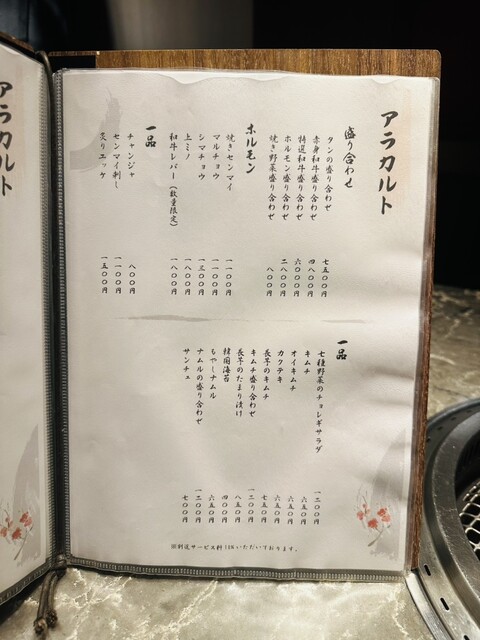 アラカルト
盛り合わせ
タンの盛り合わせ 七五〇〇円
赤身和牛盛り合わせ 四八〇〇円
特選和牛盛り合わせ 六〇〇〇円
ホルモン盛り合わせ 二八〇〇円
焼き野菜盛り合わせ 八〇〇円
ホルモン
焼きセンマイ 一一〇〇円
マルチョウ 一一〇〇円
シマチョウ 一三〇〇円
上ミノ 一八〇〇円
和牛レバー（数量限定） 一八〇〇円
一品
チャンジャ 八〇〇円
センマイ刺し 一一〇〇円
炙りユッケ 一五〇〇円
一品
七種野菜のチョレギサラダ 一二〇〇円
キムチ 六五〇円
オイキムチ 六五〇円
カクテキ 六五〇円
長芋のキムチ 七五〇円
キムチ盛り合わせ 一二〇〇円
長芋のたまり漬け 八五〇円
韓国海苔 四〇〇円
もやしナムル 六五〇円
ナムルの盛り合わせ 一二〇〇円
サンチュ 七〇〇円
※別途サービス料10%いただいております。
アラカルト